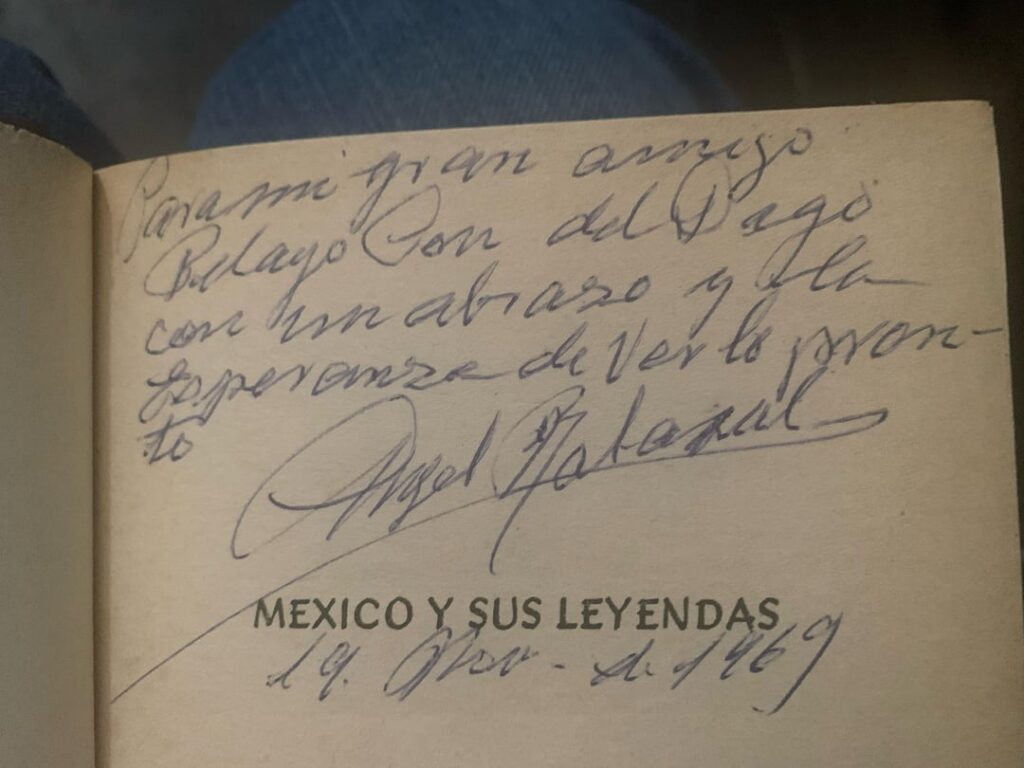 Para mi gran amigo
Pelayo Con del Pago
con un abrazo y la
esperanza de verlo pron-
to
Angel
MEXICO Y SUS LEYENDAS
19. Nov - de 1969